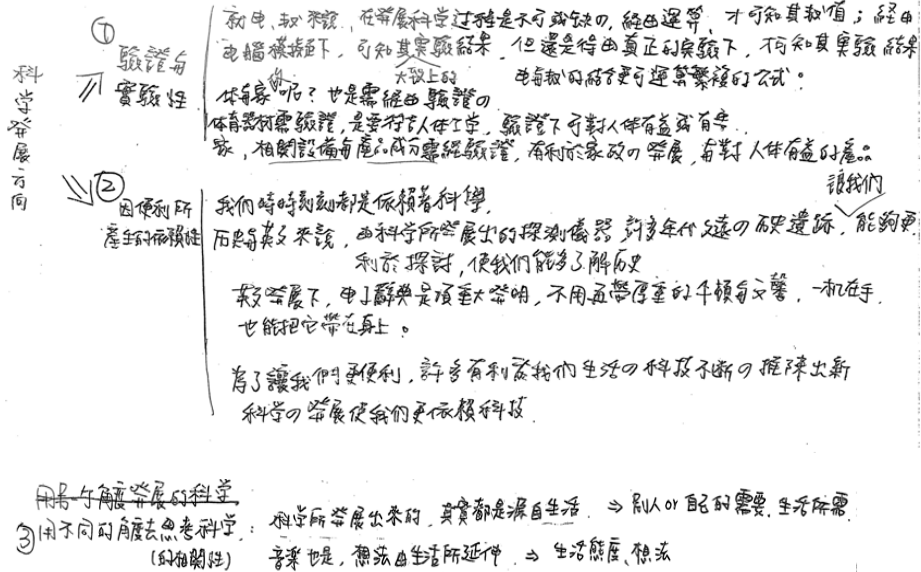 科学發展方向
① 驗證与實驗性
就电、数來說,在發展科学过程是不可或缺的,經由運算,才可知其数值;經由
电腦模擬下,可知其实驗結果,但還是得由真正的实驗下,才可知其実驗結果
大致上的
电与数的結合更可運算繁複的公式。
体与家呢?也是需經由驗證の
体育器材需驗證,是要符合人体工学,驗證下可對人体有益或有害
家,相関設備与產品成分需経驗證,有利於家政の發展,與對人体有益的產品
② 因便利所產生的依賴性
我們時時刻刻都是依賴着科學,
讓我們
历史与英文來說,由科学所發展出的探測儀器,許多年代久遠の历史遺跡,能夠更
利於探討,使我們能多了解历史
英文發展下,电子辭典是項重大發明,不用再帶厚重的牛頓与文馨,一机在手,
也能把它帶在身上。
為了讓我們更便利,許多有利於我們生活の科技不斷の推陳出新
科学の發展使我們更依賴科技.
用另一个角度發展的科学
③用不同的角度去思考科学:科学所發展出來的,其實都是源自生活 ⇒ 別人or自己的需要,生活所需
(的相関性) 音樂也是,想法由生活所延伸 ⇒ 生活態度、想法